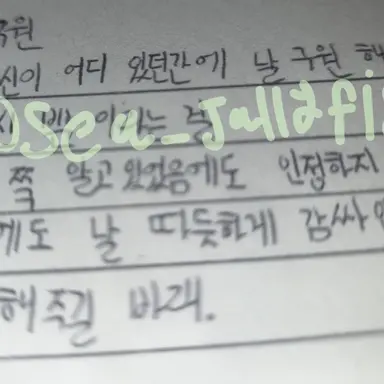 구원
신이 어디 있던간에 날 구원 해
@Sea_Jellyfi
쭉 알고 있었음에도 인정하지
에도 날 따듯하게 감싸
해주길 바래.